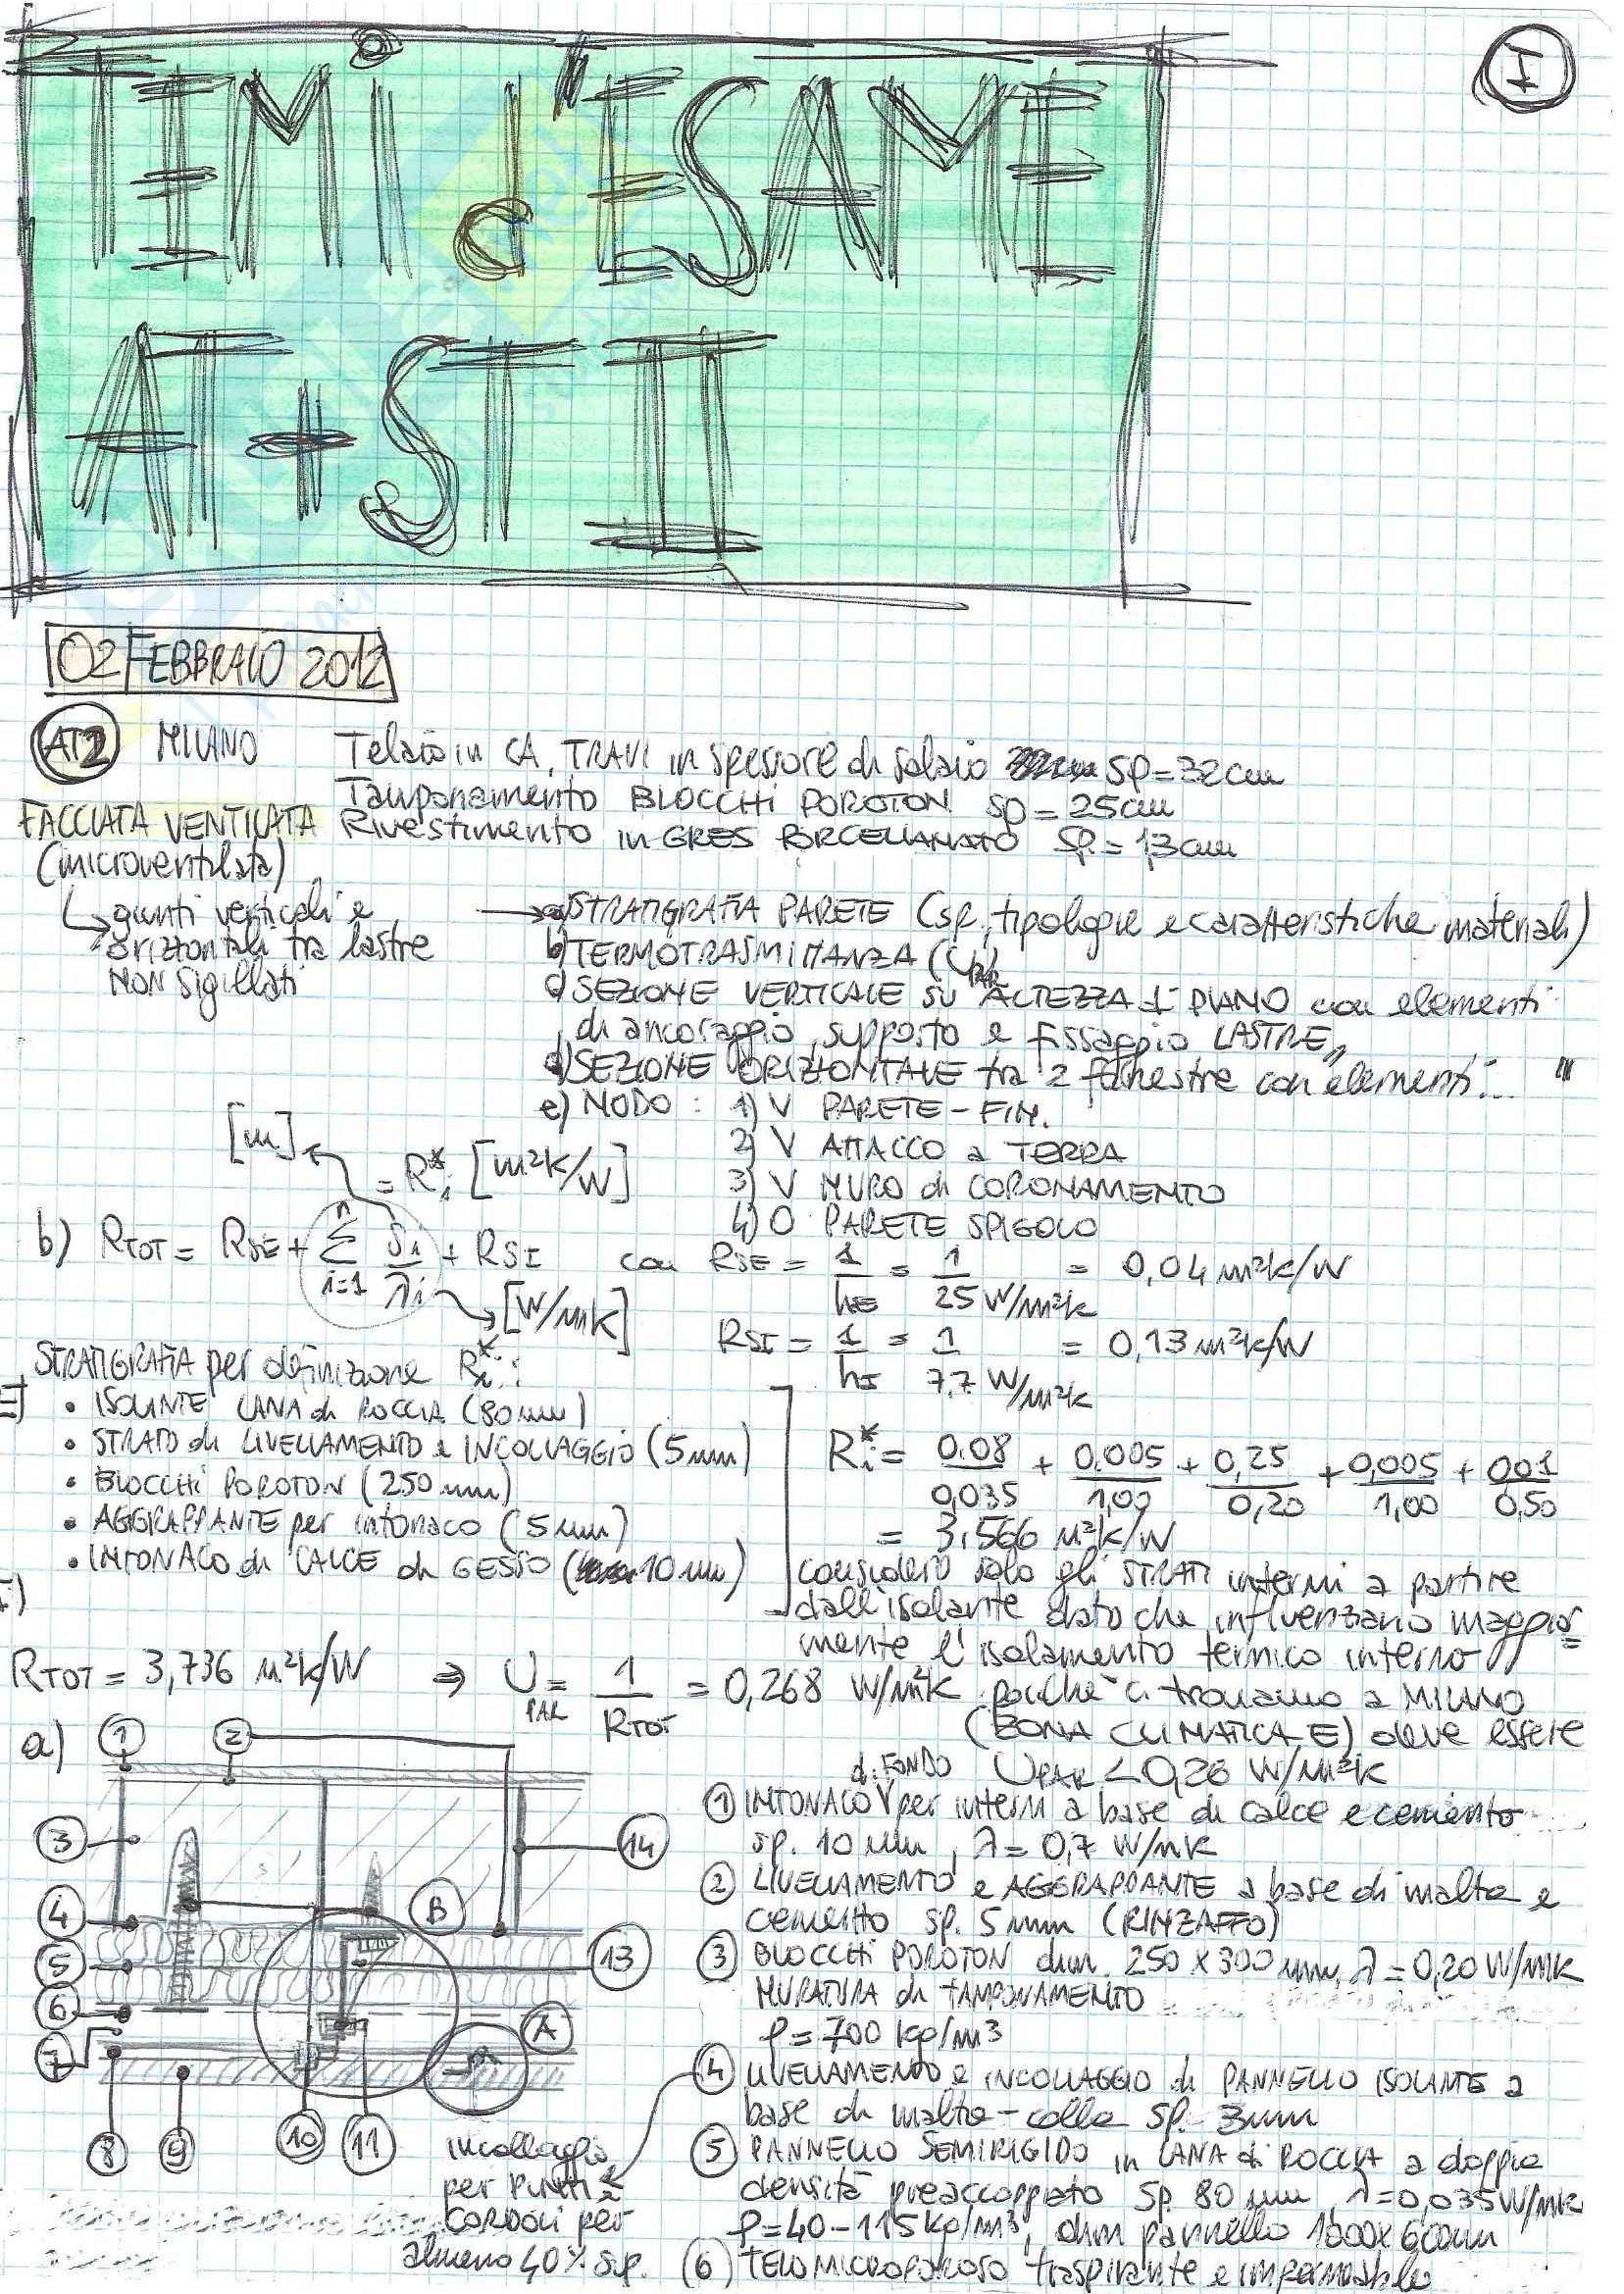 TEMI d'ESAME
AT + ST II
I
02 FEBBRAIO 2012
AT2 MILANO Telaio in CA, TRAVI in spessore di solaio SP=32cm
Tamponamento BLOCCHI POROTON SP=25cm
FACCIATA VENTILATA Rivestimento in GRES PORCELLANATO SP.= 1,3cm
(microventilata)
↳ giunti verticali e
orizzontali tra lastre
NON sigillati
→ a) STRATIGRAFIA PARETE (sp., tipologie e caratteristiche materiali)
b) TERMOTRASMITTANZA (UPAR)
c) SEZIONE VERTICALE SU ALTEZZA 1 PIANO con elementi
di ancoraggio, supporto e fissaggio LASTRE
d) SEZIONE ORIZZONTALE tra 2 finestre con elementi... "
e) NODO: 1) V PARETE-FIN.
2) V ATTACCO a TERRA
3) V MURO di CORONAMENTO
4) O PARETE SPIGOLO
[m]
= R*i [m²K/W]
b) RTOT = RSE + Σ i=1 n Si/λi + RSI con RSE = 1/hE = 1/25 W/m²K = 0,04 m²K/W
[W/mK]
RSI = 1/hI = 1/7,7 W/m²K = 0,13 m²K/W
STRATIGRAFIA per definizione R*i:
E)
• ISOLANTE LANA di ROCCIA (80mm)
• STRATO di LIVELLAMENTO e INCOLLAGGIO (5mm)
• BLOCCHI POROTON (250mm)
• AGGRAPPANTE per intonaco (5mm)
• INTONACO di CALCE di GESSO (10mm)
I)
R*i = 0.08/0,035 + 0.005/1,00 + 0,25/0,20 + 0,005/1,00 + 0,01/0,50
= 3,566 m²K/W
considero solo gli STRATI interni a partire
dall'isolante dato che influenzano maggior=
mente l'isolamento termico interno
RTOT = 3,736 m²K/W ⇒ UPAR = 1/RTOT = 0,268 W/m²K poichè ci troviamo a MILANO
(ZONA CLIMATICA E) deve essere
UPAR < 0,26 W/m²K
a) 1 2
3 14
4 B
5 13
6 A
7
8 9 10 11
incollaggio
per PUNTI e
CORDOLI per
almeno 40% sup.
1 INTONACO di FONDO per interni a base di calce e cemento
sp. 10 mm, λ= 0,7 W/mK
2 LIVELLAMENTO e AGGRAPPANTE a base di malta e
cemento sp. 5mm (RINZAFFO)
3 BLOCCHI POROTON dim. 250 X 300 mm, λ=0,20 W/mK
MURATURA di TAMPONAMENTO
ρ=700 kg/m³
4 LIVELLAMENTO e INCOLLAGGIO di PANNELLO ISOLANTE a
base di malta-colla sp. 3mm
5 PANNELLO SEMIRIGIDO in LANA di ROCCIA a doppia
densità preaccoppiato sp. 80 mm, λ=0,035 W/mK
ρ=40-115 kg/m³, dim pannello 1000x600mm
6 TELO MICROPOROSO traspirante e impermeabile